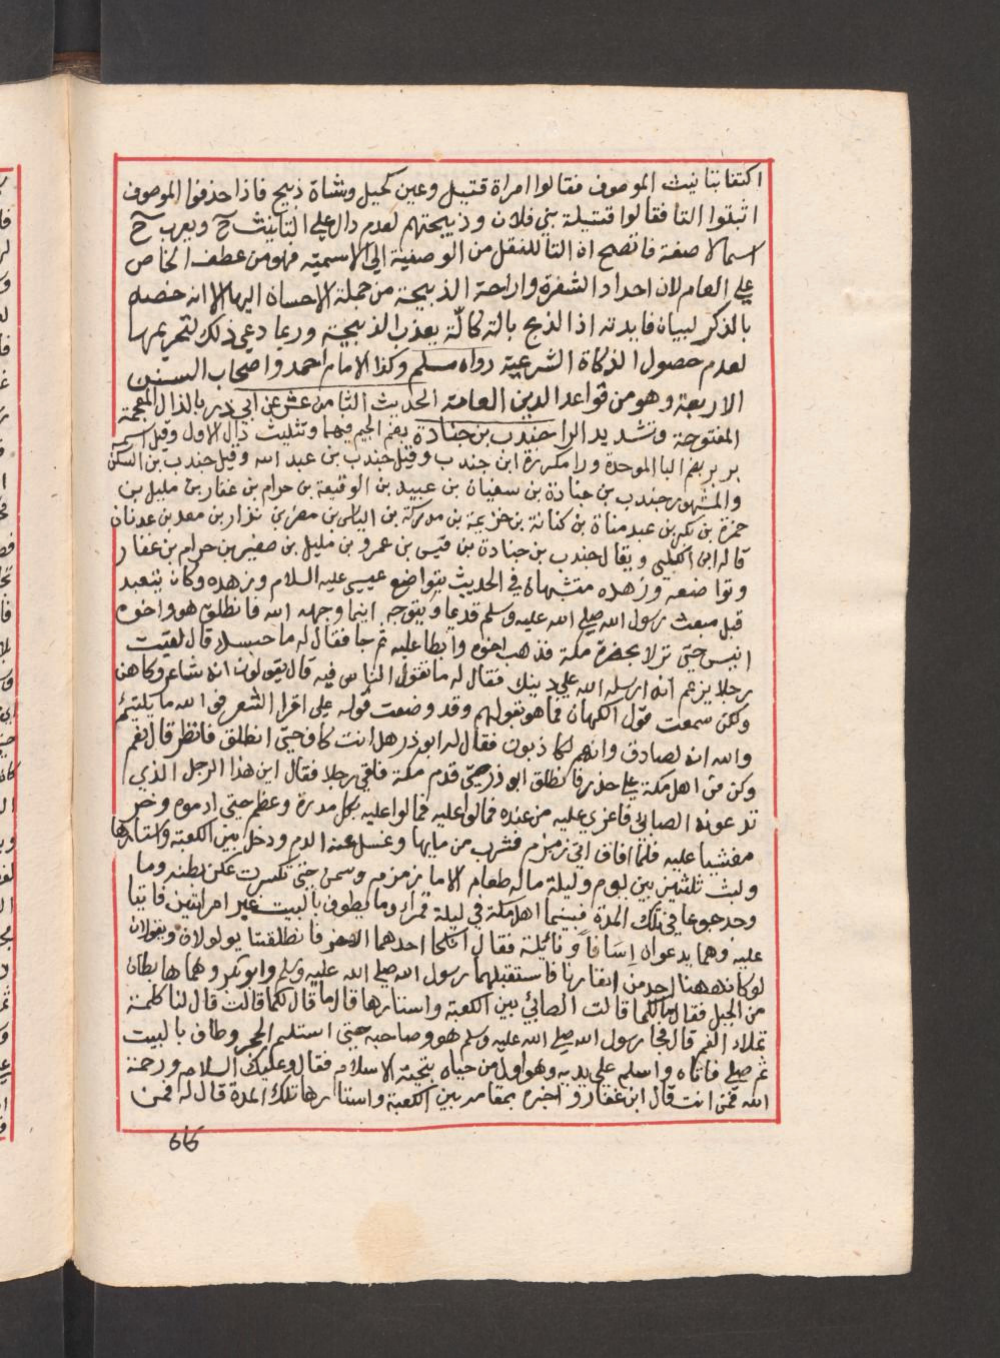 اكتفا بتانيث الموصوف فقالوا امراة قتيل وعين كحيل وشاة ذبيح فاذا حذفوا الموصوف
اثبتوا التا فقالوا قتيلة بني فلان وذبيحتهم لعدم دال على التانيث ح ويعرب ح
اسما لا صفة فاتضح ان التا للنقل من الوصفية الى الاسمية فهو من عطف الخاص
على العام لان احداد الشفرة واراحة الذبيحة من جملة الاحسان اليها الا انه خصه
بالذكر لبيان فايدته اذ الذبح بالة كالّة يعذب الذبيحة وربما دعي ذلك لتحريمها
لعدم حصول الذكاة الشرعية رواه مسلم وكذا الامام احمد واصحاب السنن
الاربعة وهو من قواعد الدين العامة الحديث الثامن عشر عن ابي ذر بالذال المعجمة
المفتوحة وتشديد الرا جندب بن جنادة بضم الجيم فيهما وتثليث دال الاول وقيل اسمه
برير بضم البا الموحدة ورا مكررة ابن جندب وقيل جندب بن عبد الله وقيل جندب بن السكن
والمشهور جندب بن جنادة بن سفيان بن عبيد بن الوقيعة بن حرام بن غفار بن مليل بن
حمزة بن بكر بن عبد مناة بن كنانة بن خزيمة بن مدركة بن الياس بن مضر بن نزار بن معد بن عدنان
قاله ابن الكلبي ويقال جندب بن جنادة بن قيس بن عمرو بن مليل بن صغير بن حرام بن غفار
وتواضعه وزهده متشبهان في الحديث بتواضع عيسى عليه السلام وزهده وكان يتعبد
قبل مبعث رسول الله صلى الله عليه وسلم قديما ويتوجه اينما وجهه الله فانطلق هو واخوه
انيس حتى نزلا بحضرة مكة فذهب اخوه وابطا عليه ثم جا فقال له ما حبسك قال لقيت
رجلا يزعم انه ارسله الله على دينك فقال له ما تقول الناس فيه قال يقولون انه شاعر وكاهن
ولكن سمعت قول الكهان فما هو بقولهم وقد وضعت قوله على اقرا الشعر فو الله ما يلتيئم
والله انه لصادق وانهم لكاذبون فقال له ابو ذر هل انت كاف حتى انطلق فانظر قال نعم
وكن من اهل مكة على حذر فانطلق ابو ذر حتى قدم مكة فلقي رجلا فقال اين هذا الرجل الذي
تدعونه الصابي فاغري عليه من عنده فمالوا عليه فمالوا عليه بكل مدرة وعظم حتى ادموه وخر
مغشيا عليه فلما افاق اتى زمزم فشرب من مايها وغسل عنه الدم ودخل بين الكعبة واستارها
ولبث ثلثين بين يوم وليلة ماله طعام الا ما زمزم وسمن حتى تكسرت عكن بطنه وما
وجد جوعا في تلك المدة فبينما اهل مكة في ليلة قمراء وما يطوف بالبيت غير امراتين فاتيا
عليه وهما يدعوان اِسَافاً ونائلة فقال انكحا احدهما الاخر فانطلقتا يولولان ويقولان
لو كان ههنا احد من انفارنا فاستقبلهما رسول الله صلى الله عليه وسلم وابو بكر وهما هابطان
من الجبل فقال ما لكما قالت الصابئ بين الكعبة واستارها قال ما قال لكما قالت قال لنا كلمة
تملاء الفم قال فجا رسول الله صلى الله عليه وسلم هو وصاحبه حتى استلم الحجر وطاف بالبيت
ثم صلى فاتاه واسلم على يديه وهو اول من حياه بتحية الاسلام فقال وعليك السلام ورحمة
الله فمن انت قال ابن غفار واخبره بمقامه بين الكعبة واستارها تلك المدة قال له فمن